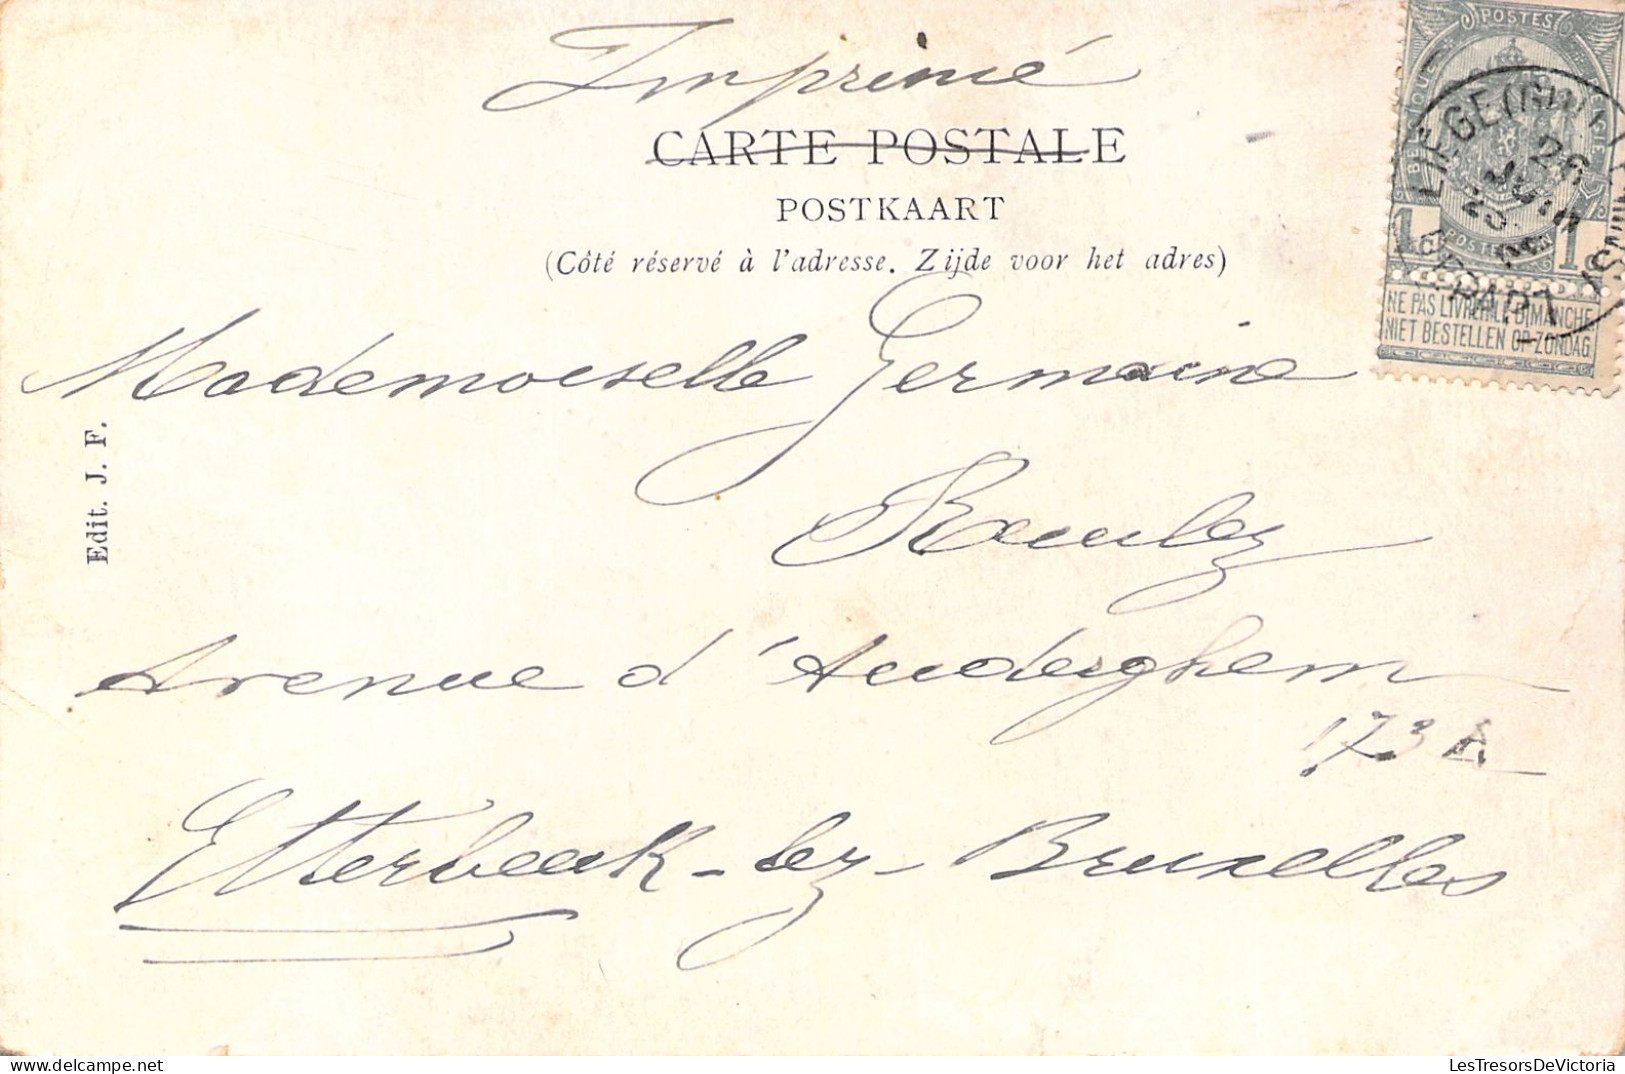 Imprimé
CARTE POSTALE
POSTKAART
(Côté réservé à l'adresse. Zijde voor het adres)
POSTES
BELGIQUE
1 1
POSTERIJEN
NE PAS LIVRER LE DIMANCHE
NIET BESTELLEN OP ZONDAG
LIÈGE
DÉPART
Mademoiselle Germaine
Roulez
Avenue d'Auderghem
173 A
Etterbeek-lez-Bruxelles
Edit. J. F.
LesTresorsDeVictoria